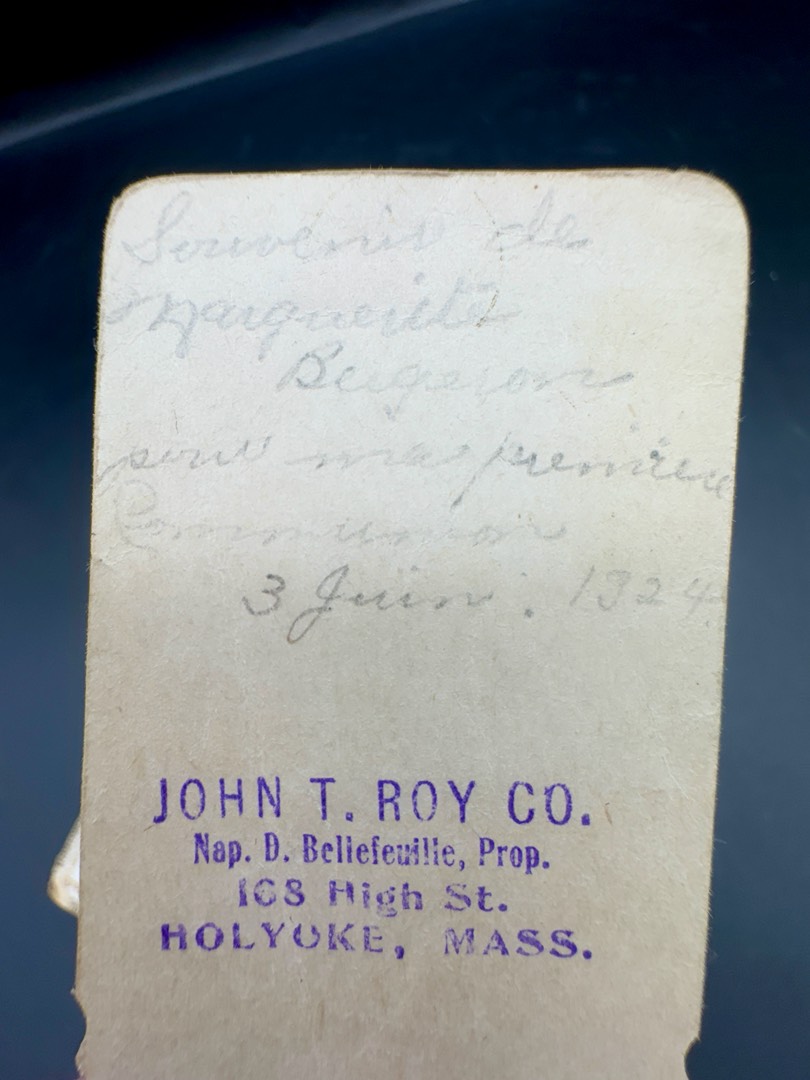 Souvenir de
Marguerite
pour ma première
Communion
3 Juin. 1924
JOHN T. ROY CO.
Nap. D. Bellefeuille, Prop.
168 High St.
HOLYOKE, MASS.